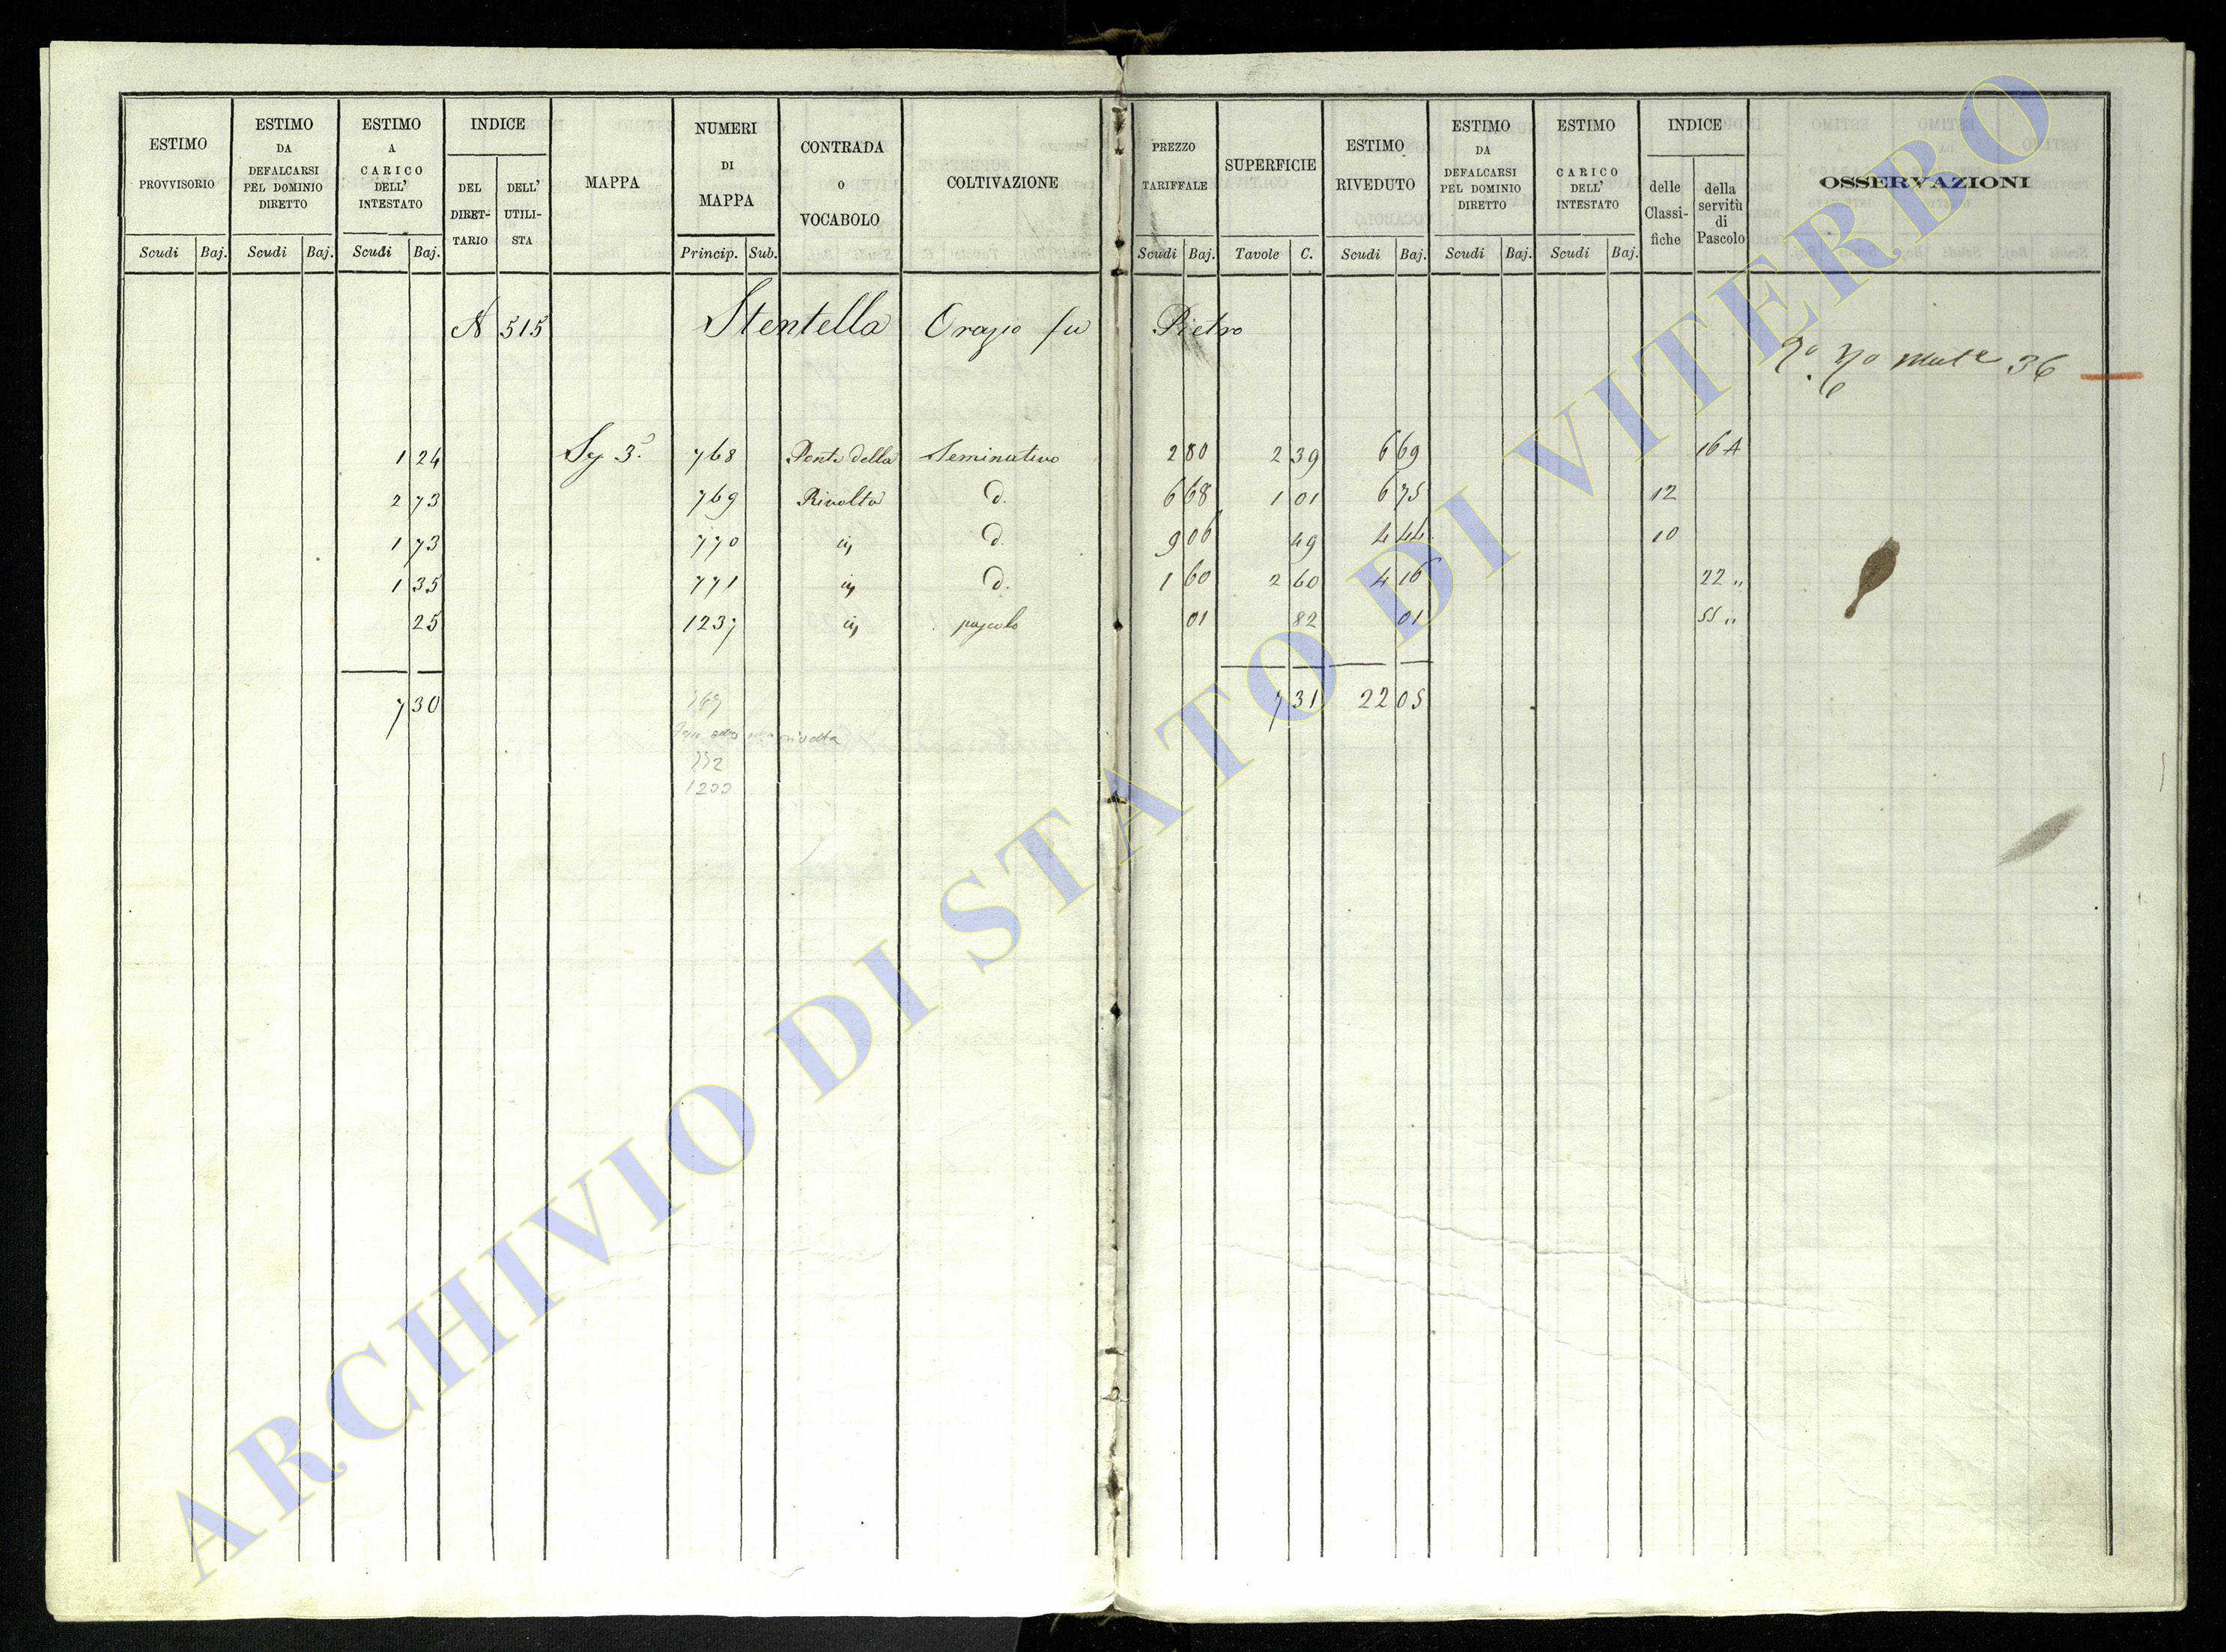 ESTIMO PROVVISORIO
ESTIMO DA DEFALCARSI PEL DOMINIO DIRETTO
ESTIMO A CARICO DELL' INTESTATO
INDICE
DEL DIRET-TARIO
DELL' UTILI-STA
MAPPA
NUMERI DI MAPPA
CONTRADA O VOCABOLO
COLTIVAZIONE
PREZZO TARIFFALE
SUPERFICIE
ESTIMO RIVEDUTO
ESTIMO DA DEFALCARSI PEL DOMINIO DIRETTO
ESTIMO CARICO DELL' INTESTATO
INDICE
delle Classi-fiche
della servitù di Pascolo
OSSERVAZIONI
Scudi Baj. Scudi Baj. Scudi Baj. Princip. Sub. Scudi Baj. Tavole C. Scudi Baj. Scudi Baj. Scudi Baj.
N 515 Stentella Orazio fu Pietro
36
1 24 Sez 3ª 768 Ponte della Seminativo 2 80 2 39 6 69 16 A
2 73 769 Rivolta d. 6 68 1 01 6 75 12
1 73 770 d. 9 06 49 4 44 10
1 35 771 d. 1 60 2 60 4 16 22 "
25 1237 pascolo 01 82 01 55 "
7 30 7 31 22 05
ARCHIVIO DI STATO DI VITERBO